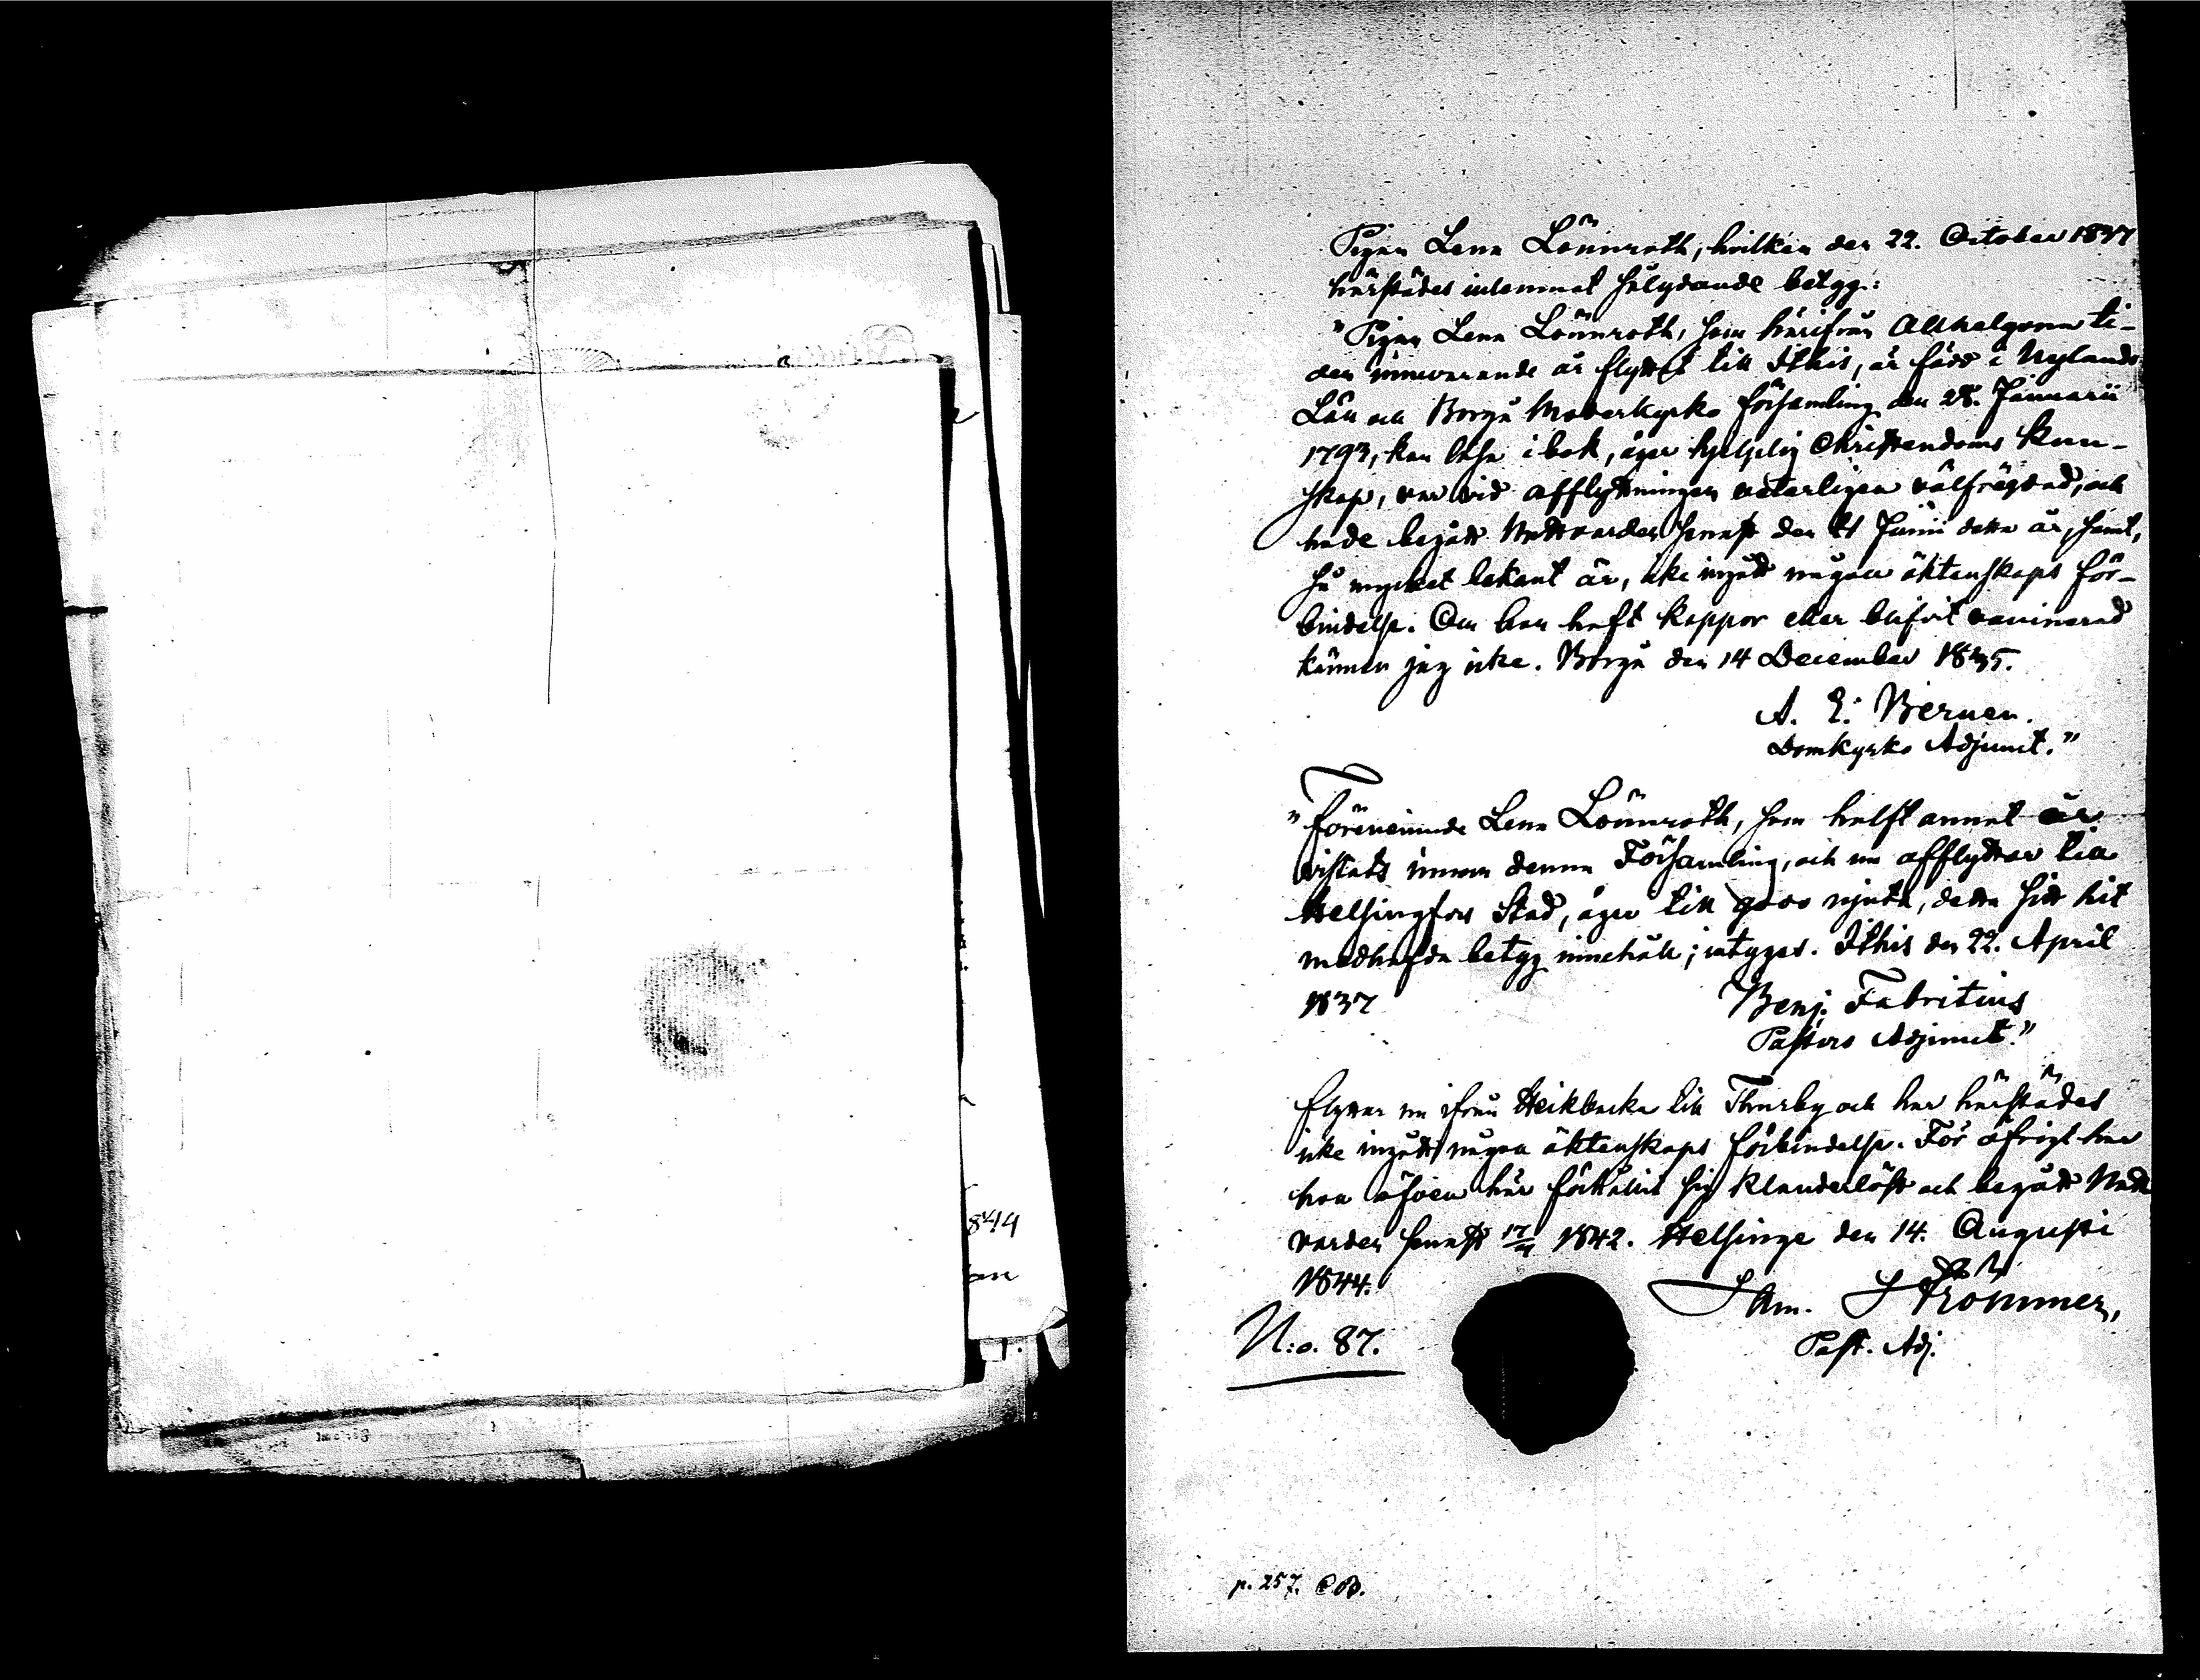 844
an
Pigan Lena Lönnroth, hvilken den 22. October 1837
härstädes inlemnat sålydande betyg:
"Pigan Lena Lönnroth, som härifrån Allhelgona ti-
den innevarande år flyttat till Ithis, är född i Nylands
Län och Borgå Moderkyrko församling den 28. Januarii
1793, kan läsa i bok, äger hjelplig Christendoms kun-
skap, var vid afflyttningen veterligen välfrägdad, och
hade begått Nattvarden senast den 21 Junii detta år, samt,
så mycket bekant är, icke ingått någon äktenskaps för-
bindelse. Om hon haft koppor eller blifvit vaccinerad
känner jag icke. Borgå den 14 December 1835.
A. E. Bernen.
Domkyrko Adjunct."
"Förenämnde Lena Lönnroth, som halft annat år
vistats innom denna Församling, och nu afflyttar till
Helsingfors Stad, äger till godo njuta, detta sitt hit
medhafda betyg innehåll; intygas. Ithis den 22. April
1837
Benj. Fabritius
Pastors Adjunct."
flyttar nu ifrån Heikbacka till Thurby och har härstädes
icke ingått någon äktenskaps förbindelse. För öfrigt har
hon äfven här förhållit sig klanderlöst och begått Natt
varden senast 17/4 1842. Helsinge den 14. Augusti
1844.
Sam. Strömmer,
Past. Adj.
N:o. 87.
p. 257.